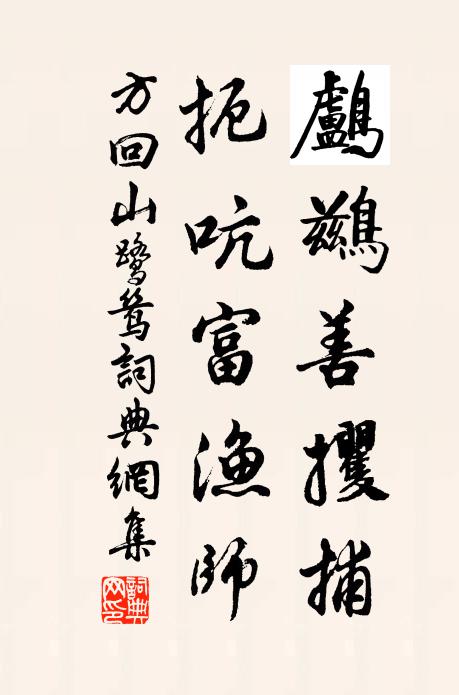 鸕鷀善攫捕
扼吭富漁師
方回山鷺鴛詞典網集
詞典網印